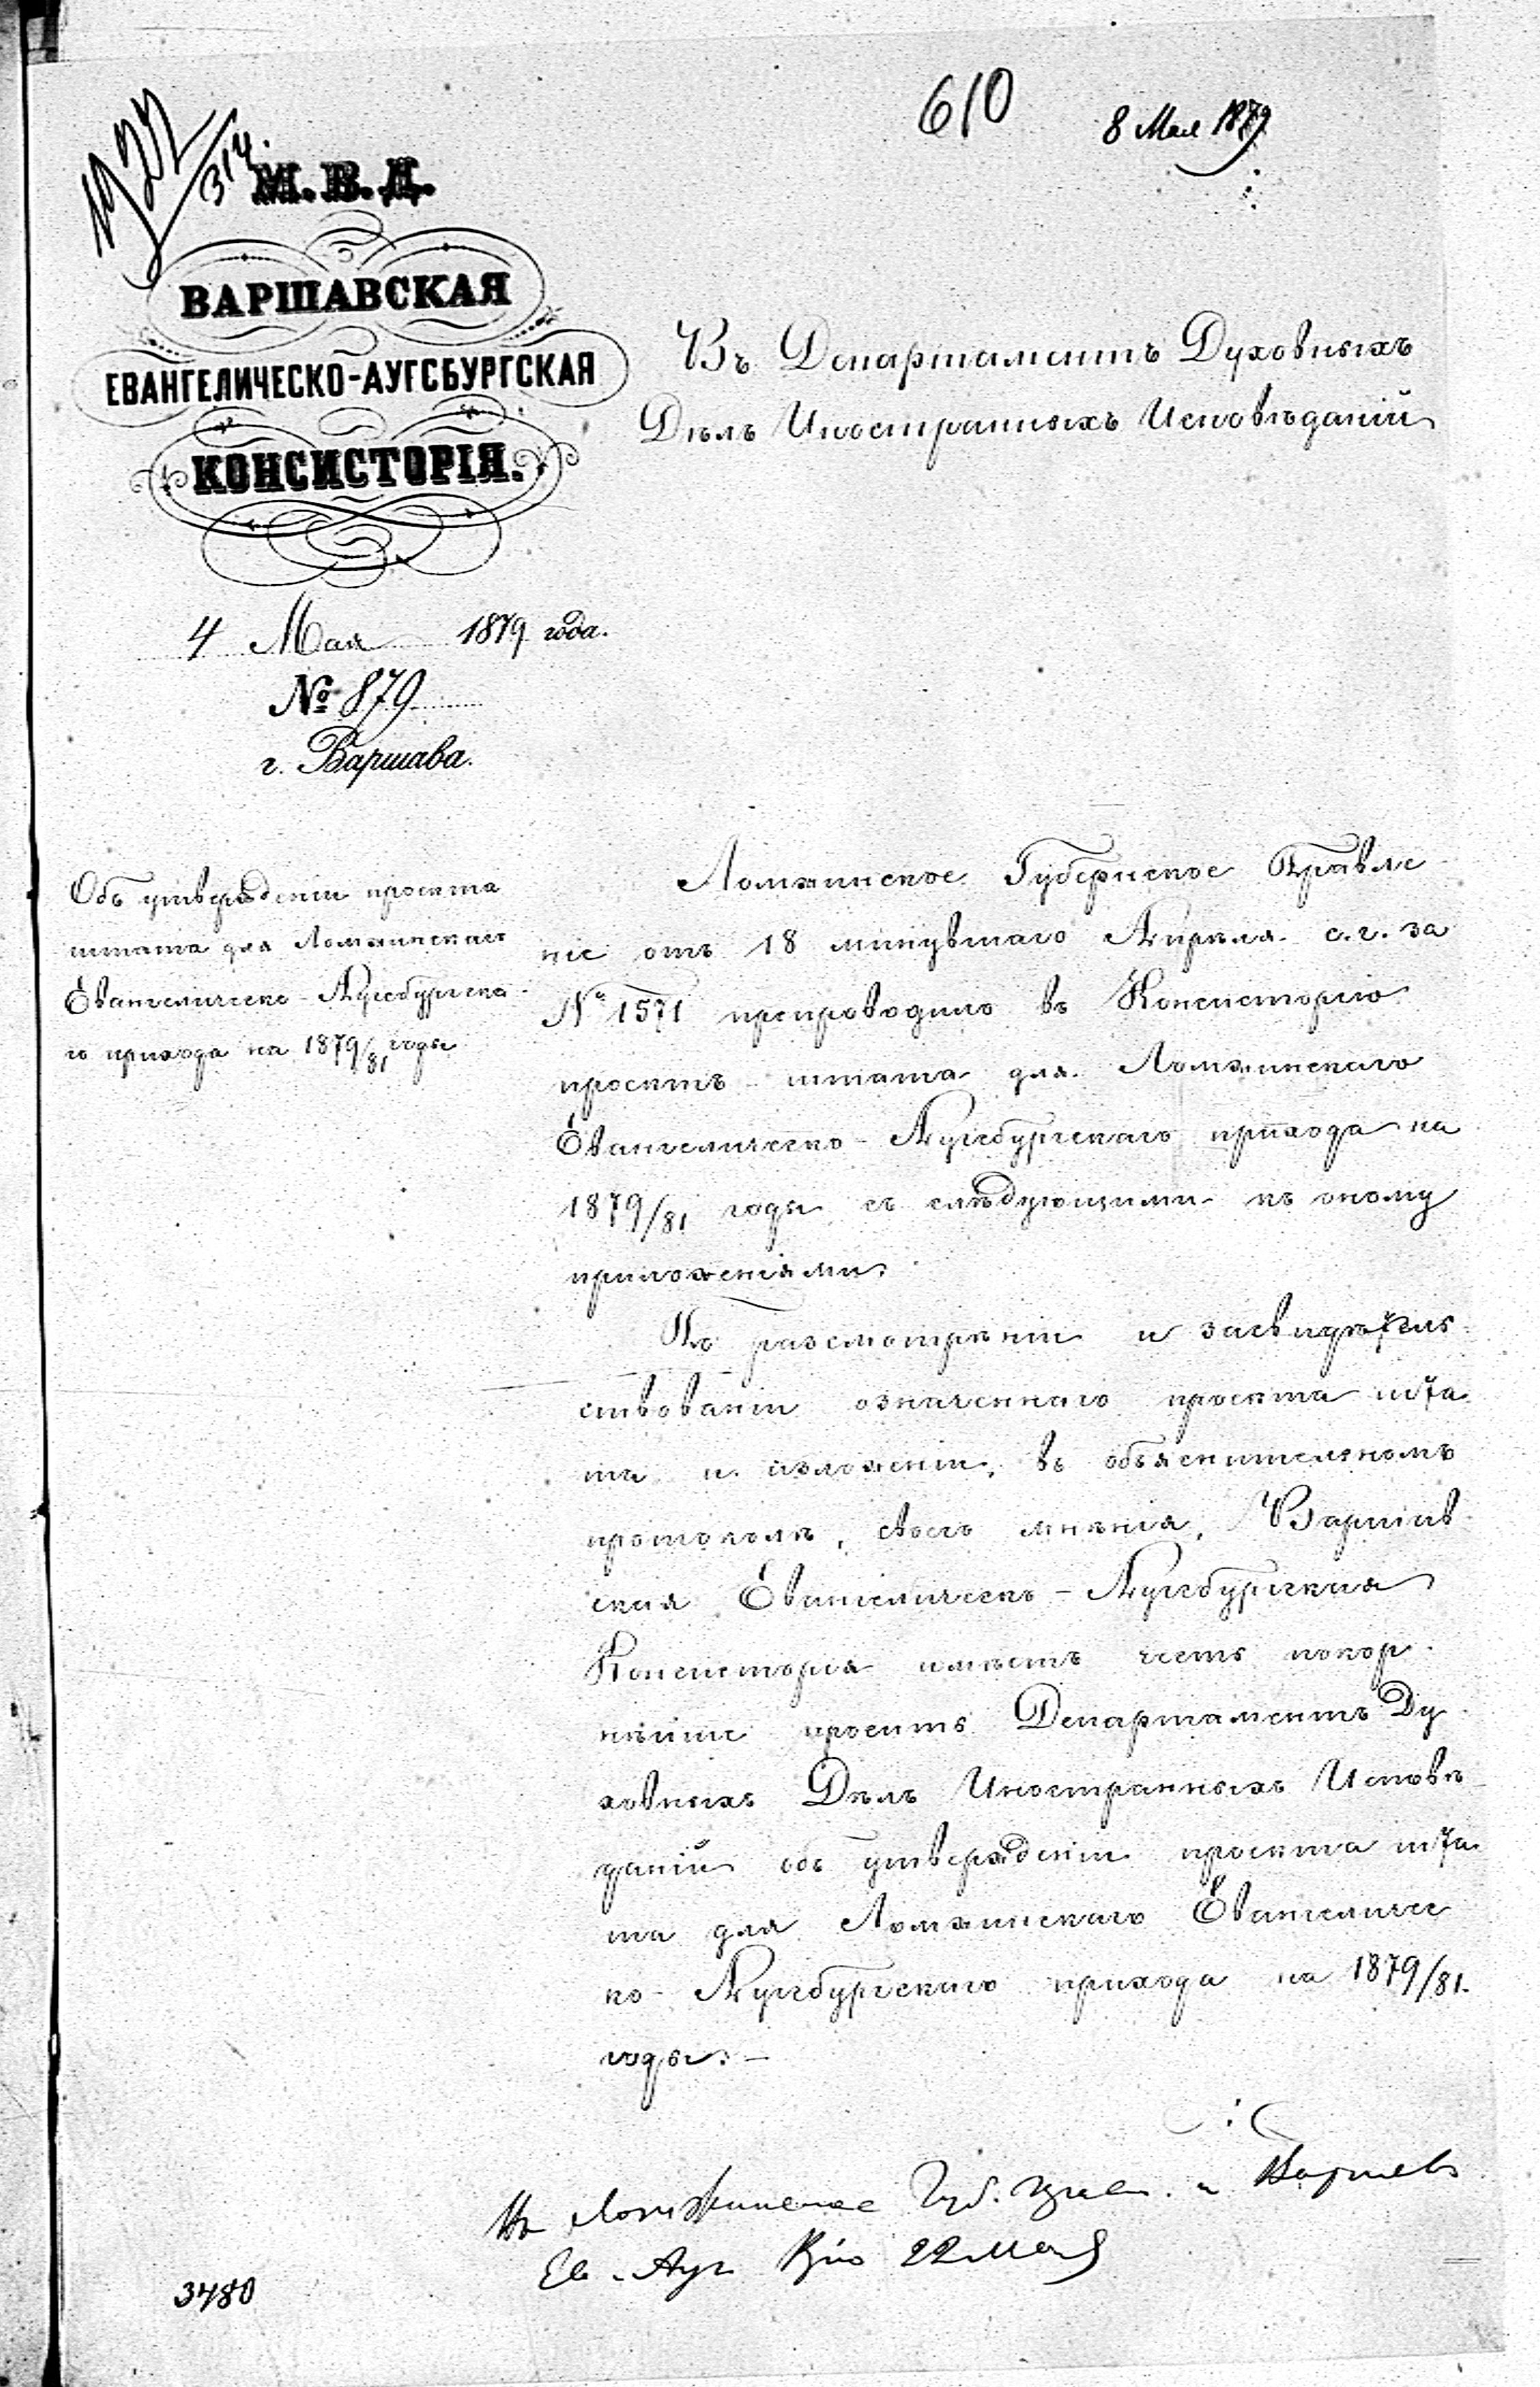 610
8 Мая 1879
314.
М. В. Д.
ВАРШАВСКАЯ
ЕВАНГЕЛИЧЕСКО-АУГСБУРГСКАЯ
КОНСИСТОРІЯ.
4 Мая 1879 года.
№ 879
г. Варшава.
Въ Департаментъ Духовныхъ
Дѣлъ Иностранныхъ Исповѣданій
Объ утвержденіи проекта
штата для Ломжинскаго
Евангелическо-Аугсбургска
го прихода на 1879/81 годы
Ломжинское Губернское Правле
ніе отъ 18 минувшаго Апрѣля с. г. за
№ 1571 препроводило въ Консисторію
проектъ штата для Ломжинскаго
Евангелическо-Аугсбургскаго прихода на
1879/81 годы съ слѣдующими къ оному
приложеніями.
По разсмотрѣніи и засвидѣтель
ствованіи означеннаго проекта шта
та и изложеніи, въ объяснительномъ
протоколѣ, своего мнѣнія, Варшав
ская Евангелическо-Аугсбургская
Консисторія имѣетъ честь покор
нѣйше просить Департаментъ Ду
ховныхъ Дѣлъ Иностранныхъ Исповѣ
даній объ утвержденіи проекта шта
та для Ломжинскаго Евангеличес
ко-Аугсбургскаго прихода на 1879/81.
годы.—
Въ Ломжинское Губ. Прав. и Варшав
Ев.-Ауг. К-ію 22 мая
3480